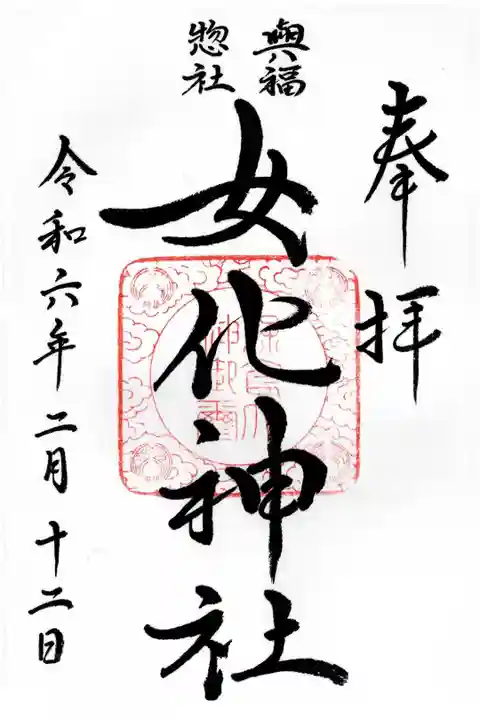 奉拝
興福
惣社
女化神社
令和六年二月十二日